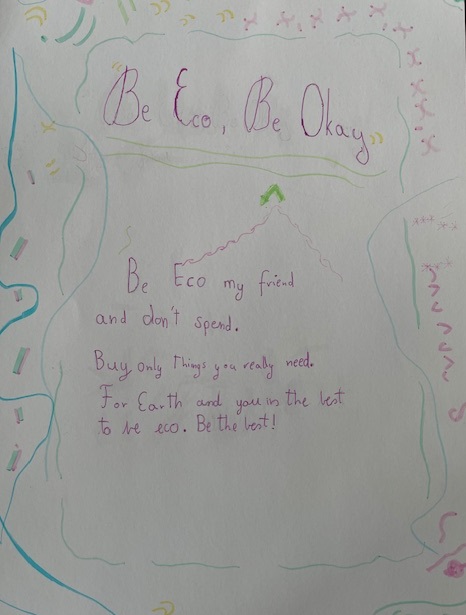 "Be Eco, Be Okay"
Be Eco my friend
and don't spend.
Buy only Things you really need.
For Earth and you is the best
to be eco. Be the best!